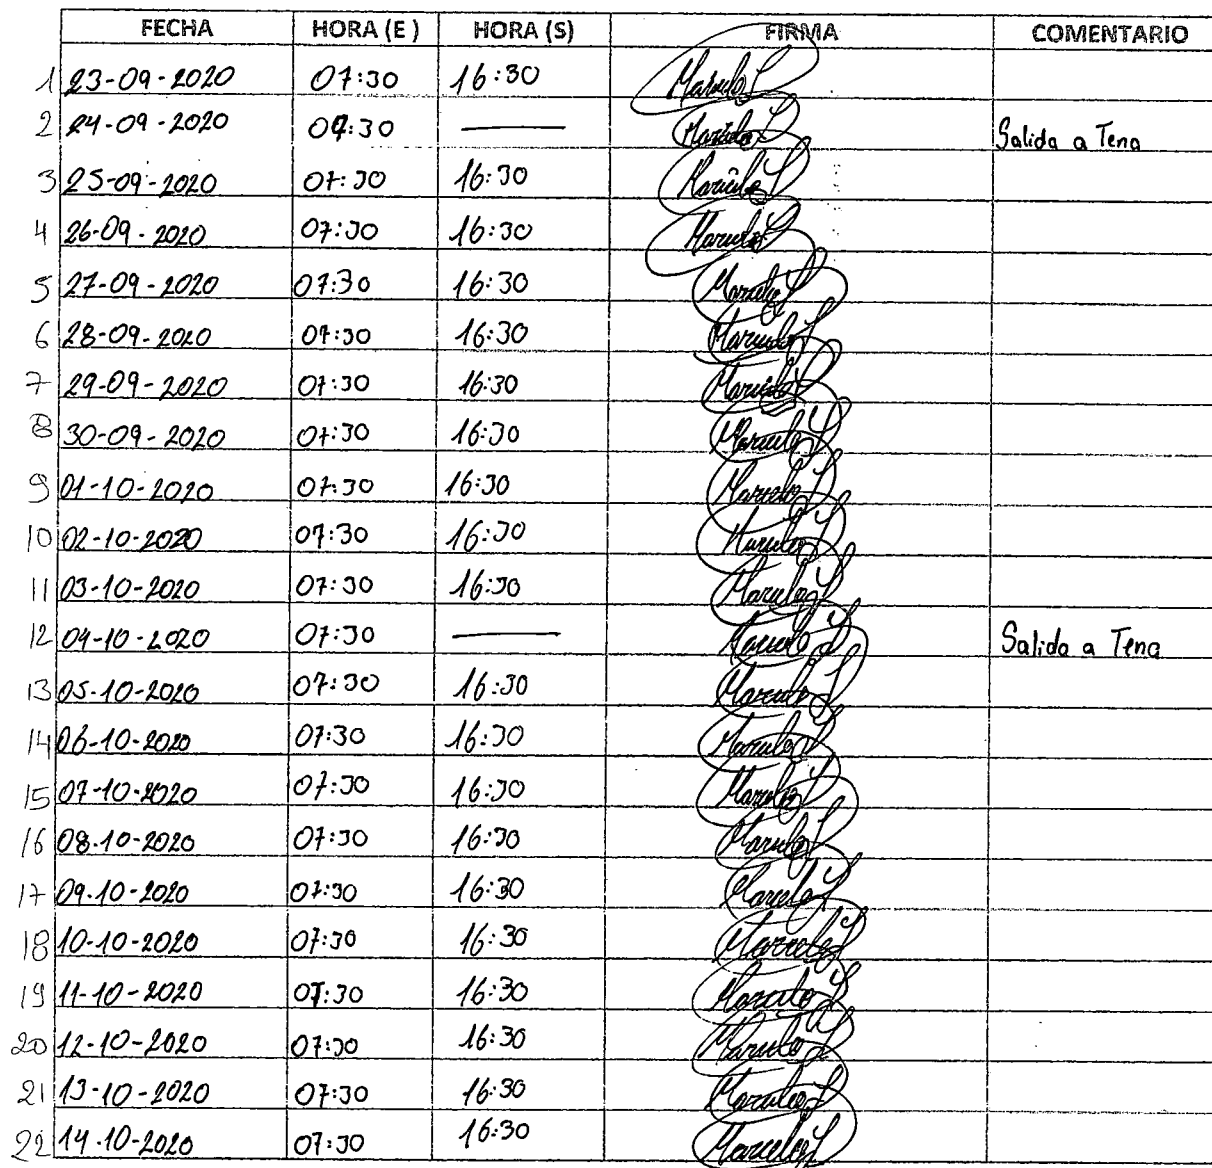 FECHA HORA (E) HORA (S) FIRMA COMENTARIO
1 23-09-2020 07:30 16:30 Marcelo S
2 24-09-2020 07:30 — Marcelo S Salida a Tena
3 25-09-2020 07:30 16:30 Marcelo S
4 26-09-2020 07:30 16:30 Marcelo S
5 27-09-2020 07:30 16:30 Marcelo S
6 28-09-2020 07:30 16:30 Marcelo S
7 29-09-2020 07:30 16:30 Marcelo S
8 30-09-2020 07:30 16:30 Marcelo S
9 01-10-2020 07:30 16:30 Marcelo S
10 02-10-2020 07:30 16:30 Marcelo S
11 03-10-2020 07:30 16:30 Marcelo S
12 04-10-2020 07:30 — Marcelo S Salida a Tena
13 05-10-2020 07:30 16:30 Marcelo S
14 06-10-2020 07:30 16:30 Marcelo S
15 07-10-2020 07:30 16:30 Marcelo S
16 08-10-2020 07:30 16:30 Marcelo S
17 09-10-2020 07:30 16:30 Marcelo S
18 10-10-2020 07:30 16:30 Marcelo S
19 11-10-2020 07:30 16:30 Marcelo S
20 12-10-2020 07:30 16:30 Marcelo S
21 13-10-2020 07:30 16:30 Marcelo S
22 14-10-2020 07:30 16:30 Marcelo S